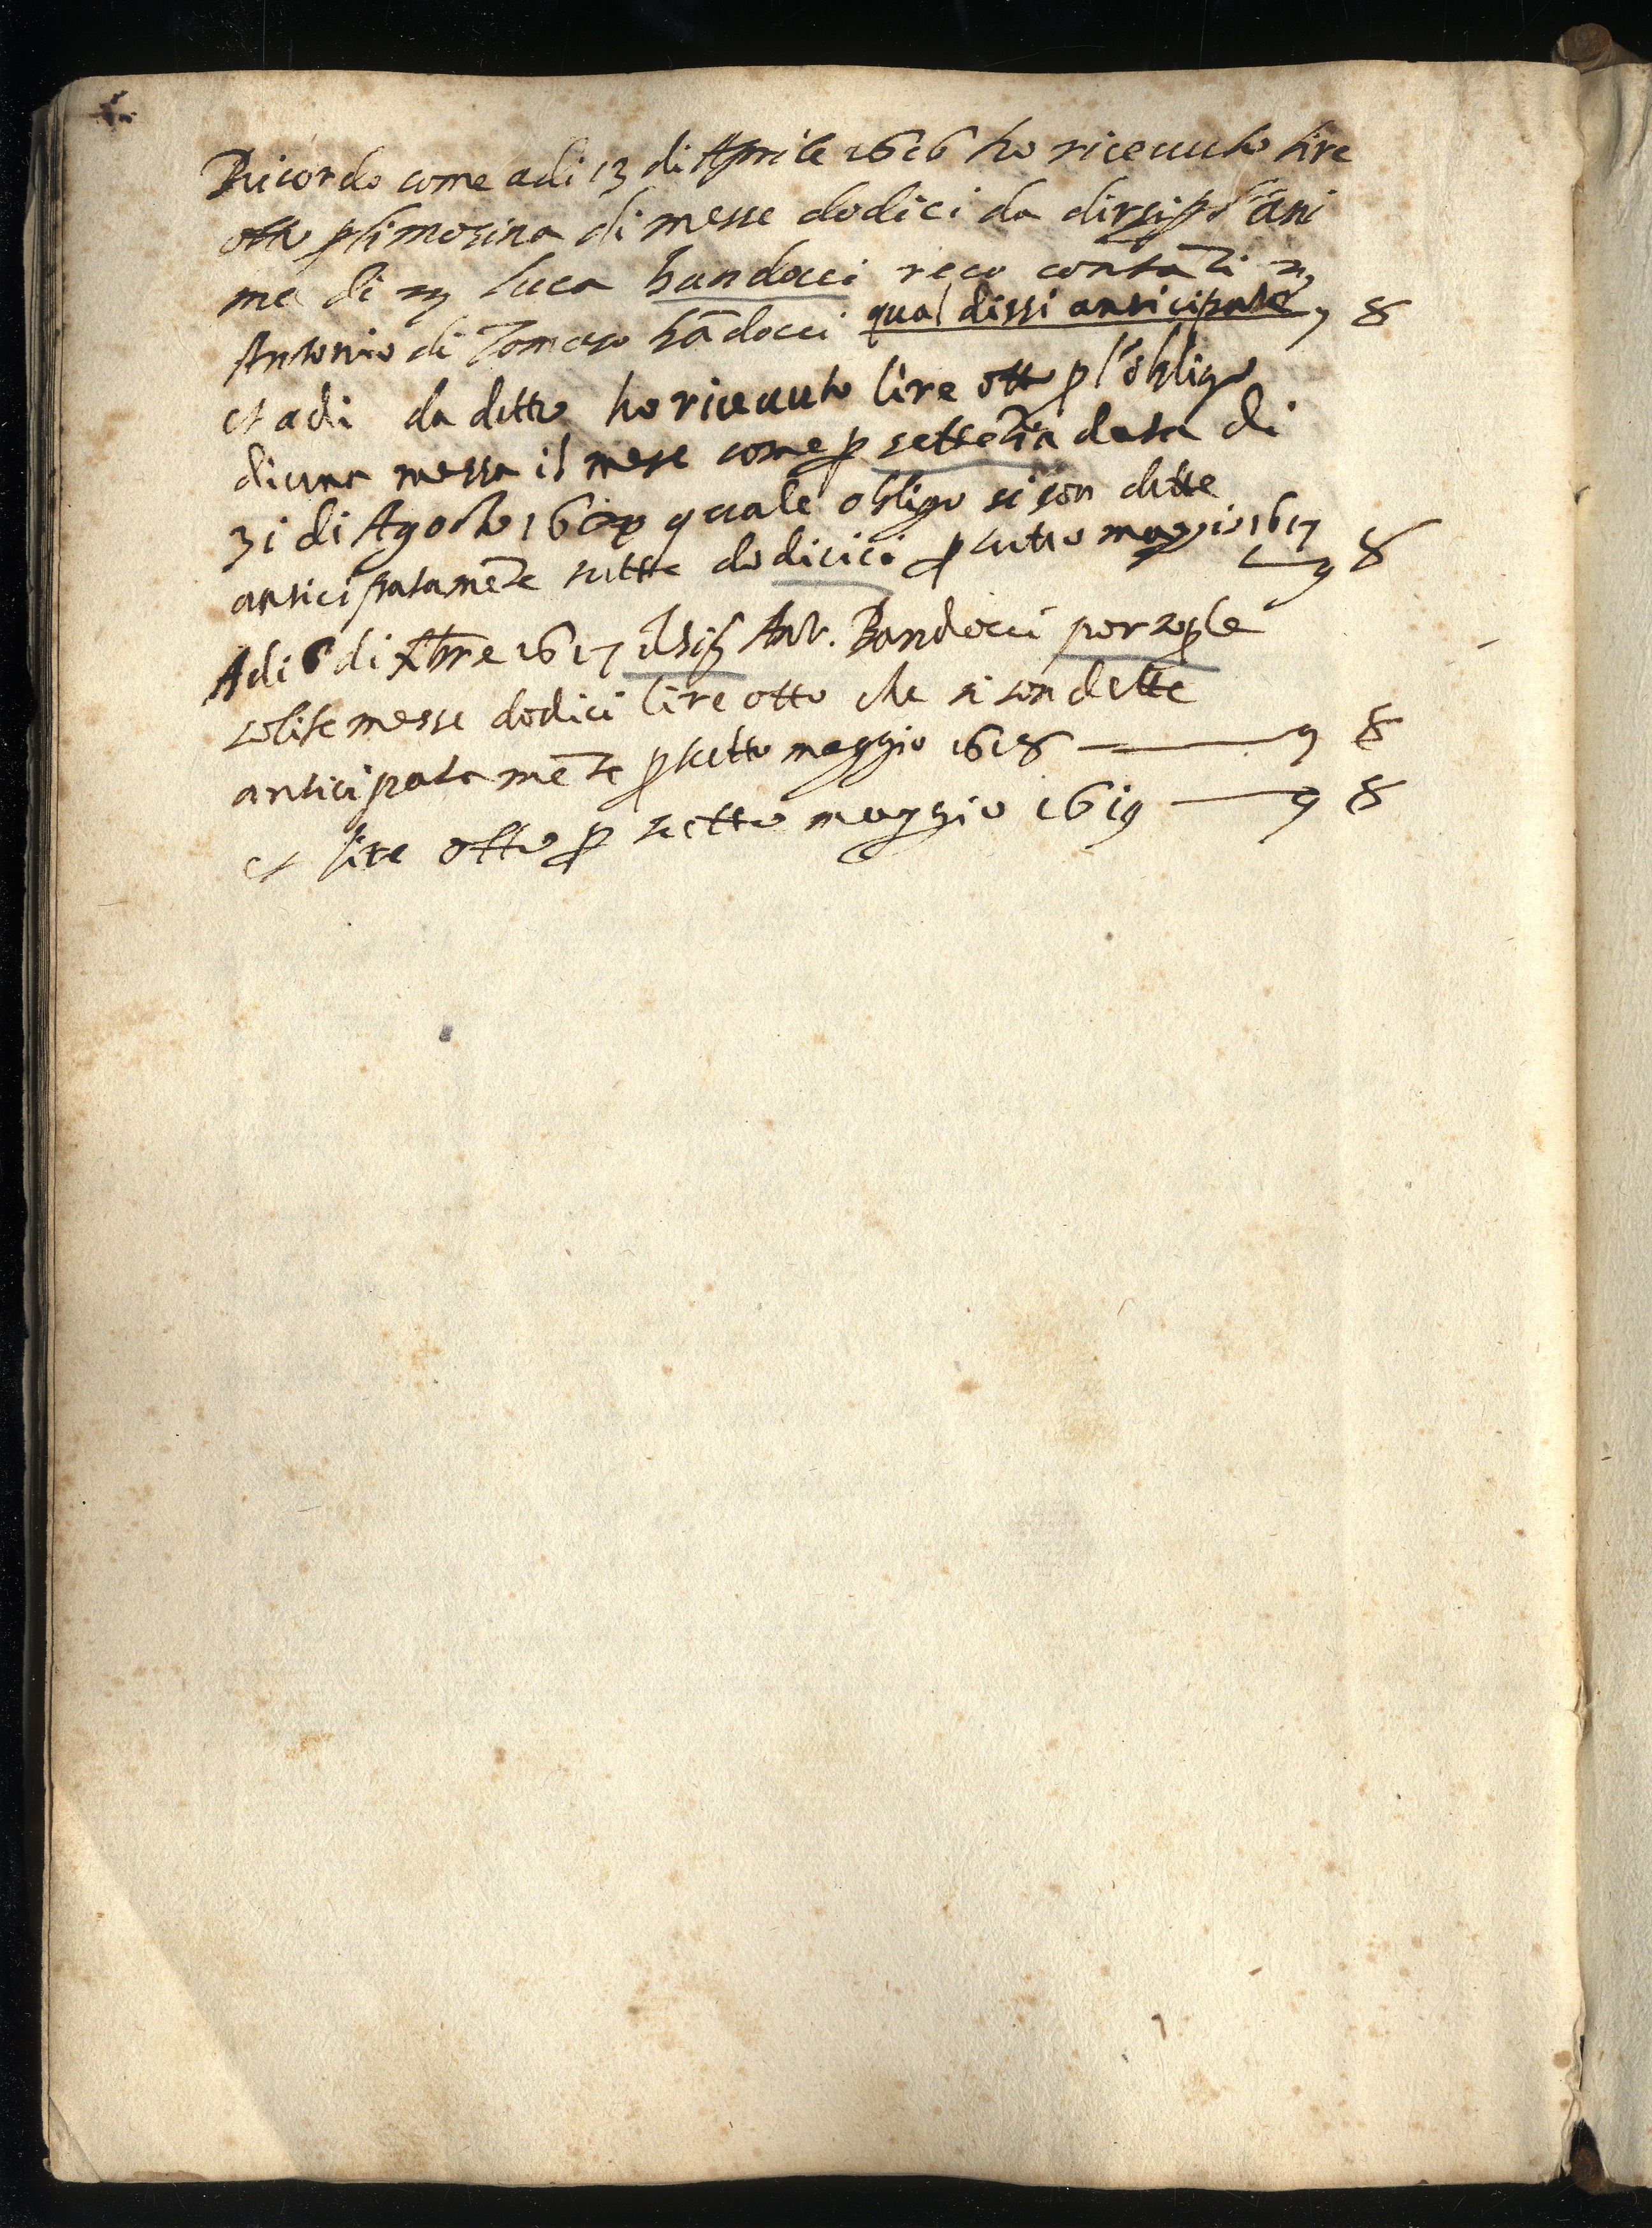 Ricordo come adi 13 di Aprile 1616 ho riceuuto lire
otto p limosina di messe dodici da dirsi p l'ani
ma di m Luca bandocci reco contati m
Antonio di Tomaso bãdocci qual dissi anticipate 8
et adi da detto ho riceuuto lire otto p l'obligo
di una messa il mese come p settẽtia data di
31 di Agosto quale obligo si son dette
anticipatamẽte tutte dodicici p tutto maggio 1617 8
Adi 6 di Xbre 1617 il sig Ant. Bandocci
solite messe dodici lire otto che si son dette
anticipatamẽte p tutto maggio 1618 — 8
et lire otto p tutto maggio 1619 — 8